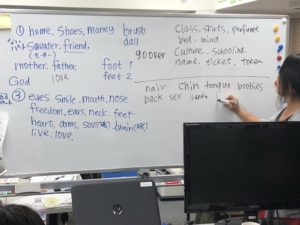 ① home, shoes, money
brush
day
sweater, friend,
mother, father,
foot 1
God
love
feet 2
class, skats, perfume
bed, mind
culture, schooling
name, ticket, token
hair chin tongue boobies
back sex hands
③ eyes smile, mouth, nose
freedom, ears, neck, feet
heart, arms, soul brain
live, love,